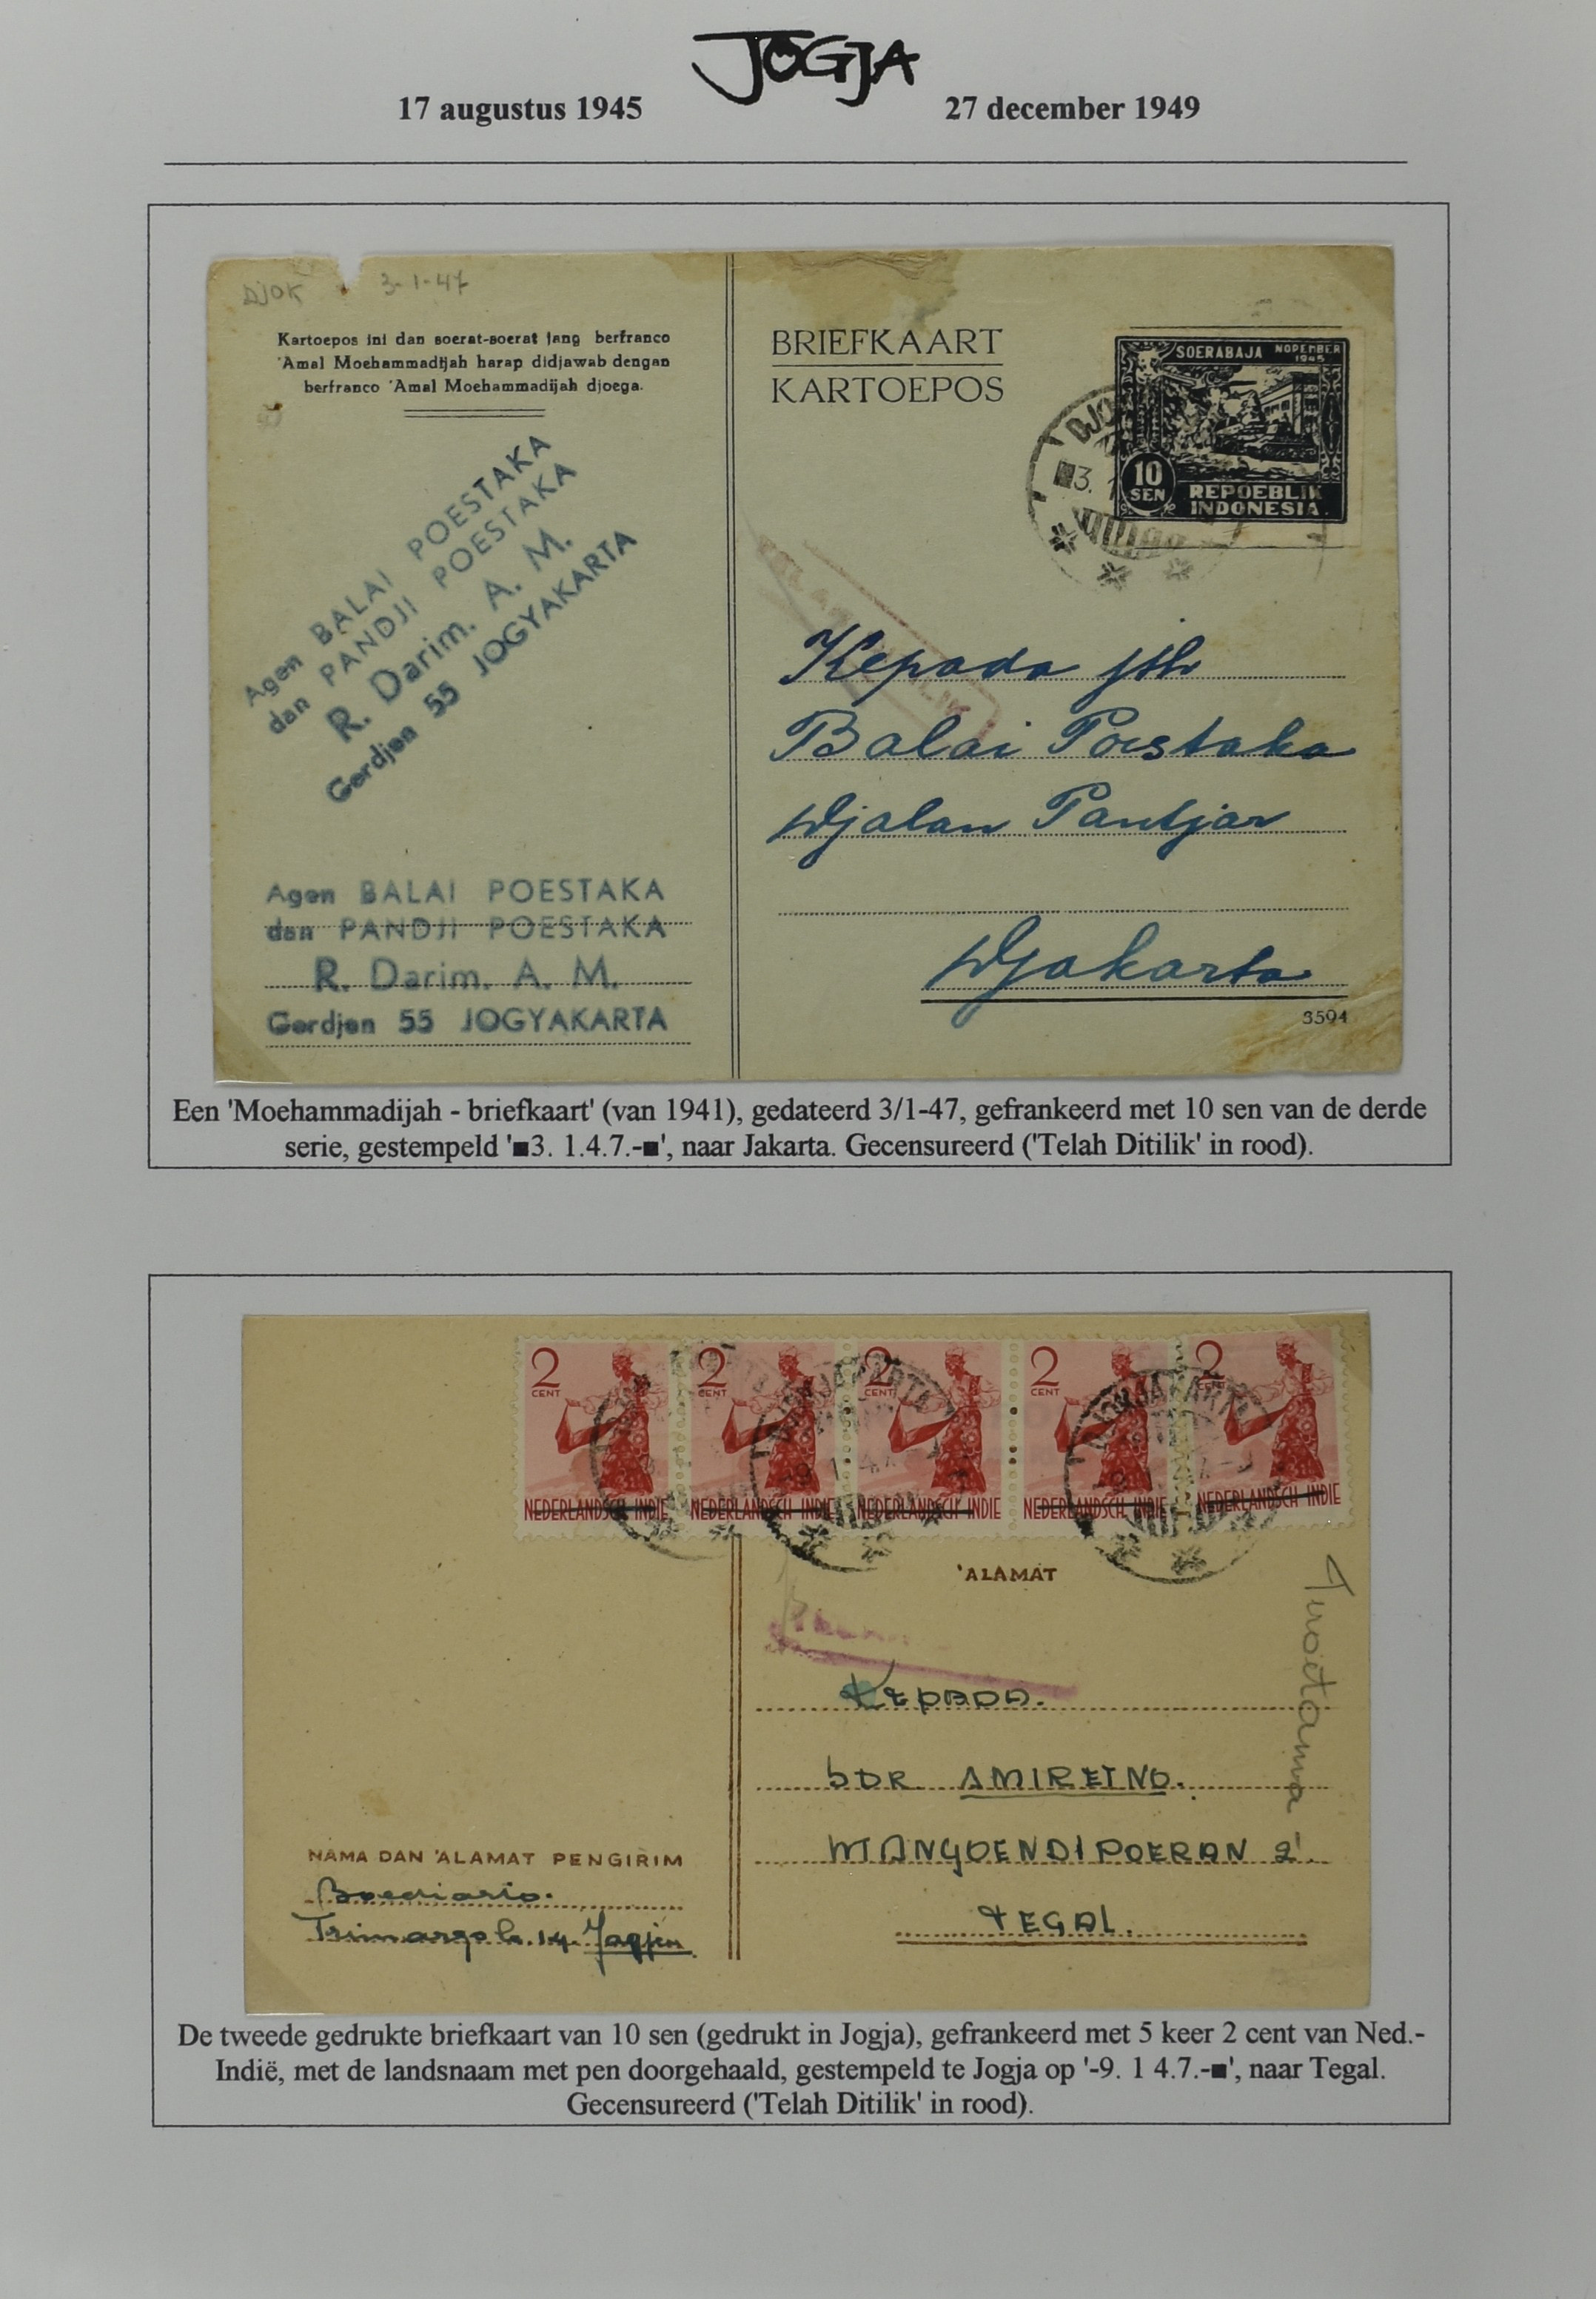 JOGJA
17 augustus 1945
27 december 1949
DJOK 3-1-47
Kartoepos ini dan soerat-soerat jang berfranco
'Amal Moehammadijah harap didjawab dengan
berfranco 'Amal Moehammadijah djoega.
BRIEFKAART
KARTOEPOS
SOERABAJA NOPEMBER
1945
10
SEN
REPOEBLIK
INDONESIA
DJO
■3. 1
Agen BALAI POESTAKA
dan PANDJI POESTAKA
R. Darim. A. M.
Gerdjen 55 JOGYAKARTA
Kepada jth
Balai Poestaka
Djalan Pantjar
Djakarta
3594
Agen BALAI POESTAKA
dan PANDJI POESTAKA
R. Darim. A. M.
Gerdjen 55 JOGYAKARTA
Een 'Moehammadijah - briefkaart' (van 1941), gedateerd 3/1-47, gefrankeerd met 10 sen van de derde
serie, gestempeld '■3. 1.4.7.-■', naar Jakarta. Gecensureerd ('Telah Ditilik' in rood).
2 CENT 2 CENT 2 CENT 2 CENT 2
NEDERLANDSCH INDIE NEDERLANDSCH INDIE NEDERLANDSCH INDIE NEDERLANDSCH INDIE NEDERLANDSCH INDIE
'ALAMAT
KEPADA.
SDR AMIRETNO.
MANGOENDIPOERAN 2
TEGAL.
NAMA DAN 'ALAMAT PENGIRIM
Boediario.
Trimargo k. 14. Jogja
De tweede gedrukte briefkaart van 10 sen (gedrukt in Jogja), gefrankeerd met 5 keer 2 cent van Ned.-
Indië, met de landsnaam met pen doorgehaald, gestempeld te Jogja op '-9. 1 4.7.-■', naar Tegal.
Gecensureerd ('Telah Ditilik' in rood).